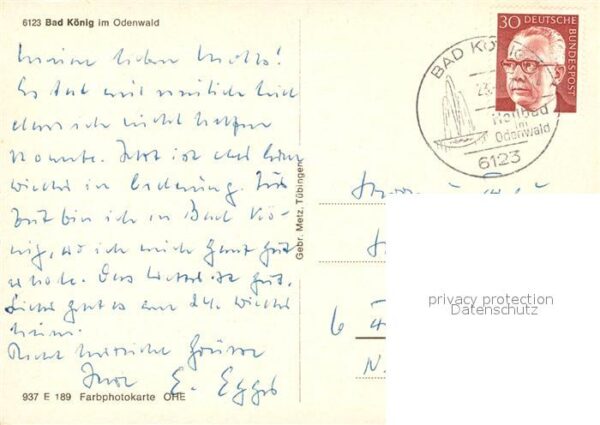 6123 Bad König im Odenwald
Meine lieben
Es tut mir wirklich leid
dass ich nicht helfen
konnte. Jetzt ist das
wieder in Ordnung. Zur
Zeit bin ich in Bad Kö-
nig, wo ich mich ganz gut
erhole. Das Wetter ist gut.
am 24. wieder
heim.
Recht herzliche Grüsse
E. Eggs
937 E 189 Farbphotokarte OHE
Gebr. Metz, Tübingen
30 DEUTSCHE BUNDESPOST
BAD KÖNIG
23.
Heilbad
im
Odenwald
6123
privacy protection
Datenschutz
6
N.